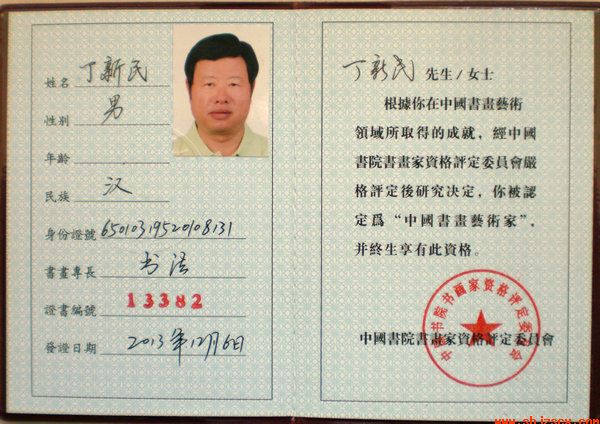 姓名 丁新民
性别 男
年龄
民族 汉
身份證號 65010319520108131
書畫專長 书法
證書编號 13382
發證日期 2013年12月6日
丁新民 先生/女士
根據你在中國書畫藝術
領域所取得的成就，經中國
書院書畫家資格評定委員會嚴
格評定後研究决定，你被認
定爲“中國書畫藝術家”，
并終生享有此資格。
中國書院書畫家資格評定委員會
中国书院书画家资格评定委员会